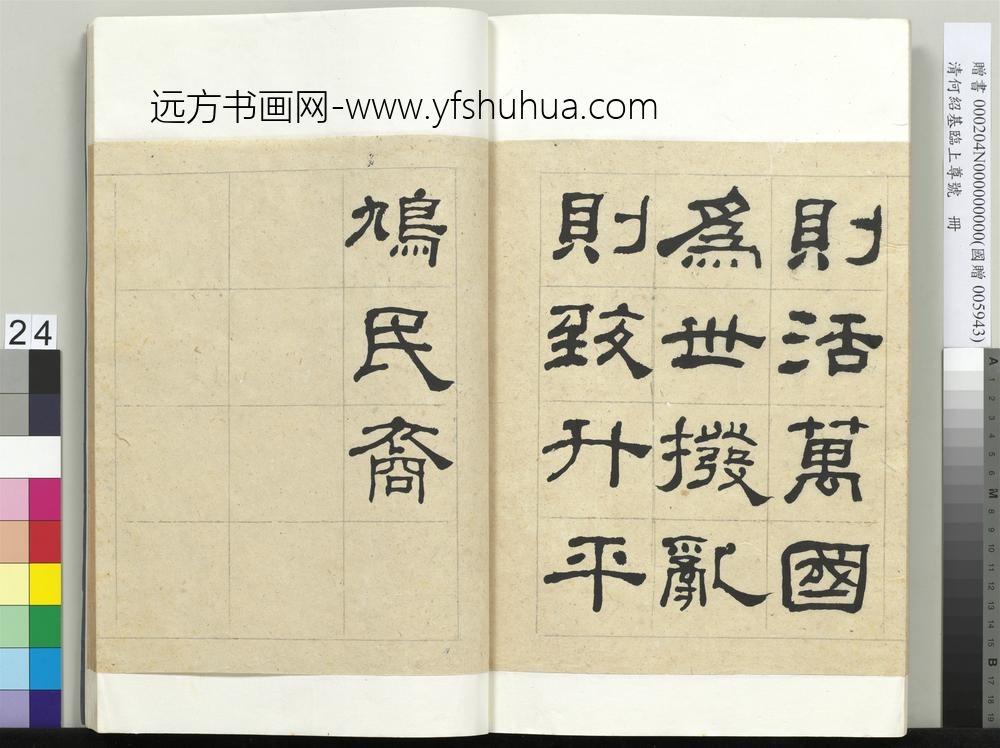 远方书画网-www.yfshuhua.com
則活萬國
為世撥亂
則致升平
鳩民裔
贈書 000204N000000000(國贈 005943)
清何紹基臨上尊號 冊
24
A 1 2 3 4 5 6 M 8 9 10 11 12 13 14 15 B 17 18 19